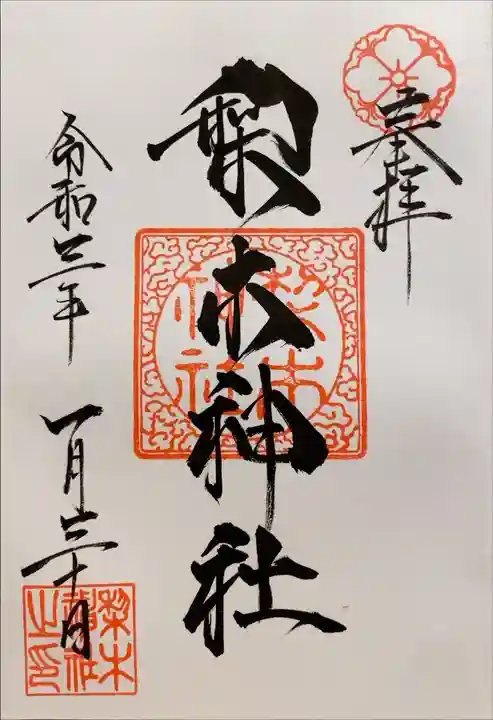 奉拝
梨木神社
令和三年
一月三十日
梨木神社
梨木
神社
之印